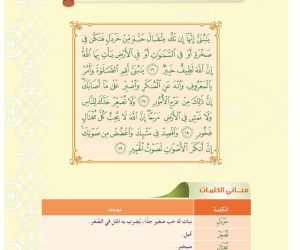 يَـٰبُنَىَّ إِنَّهَآ إِن تَكُ مِثْقَالَ حَبَّةٍ مِّنْ خَرْدَلٍ فَتَكُن فِى
صَخْرَةٍ أَوْ فِى ٱلسَّمَـٰوَٰتِ أَوْ فِى ٱلْأَرْضِ يَأْتِ بِهَا ٱللَّهُ
إِنَّ ٱللَّهَ لَطِيفٌ خَبِيرٌ ١٦ يَـٰبُنَىَّ أَقِمِ ٱلصَّلَوٰةَ وَأْمُرْ
بِٱلْمَعْرُوفِ وَٱنْهَ عَنِ ٱلْمُنكَرِ وَٱصْبِرْ عَلَىٰ مَآ أَصَابَكَ
إِنَّ ذَٰلِكَ مِنْ عَزْمِ ٱلْأُمُورِ ١٧ وَلَا تُصَعِّرْ خَدَّكَ لِلنَّاسِ
وَلَا تَمْشِ فِى ٱلْأَرْضِ مَرَحًا إِنَّ ٱللَّهَ لَا يُحِبُّ كُلَّ مُخْتَالٍ
فَخُورٍ ١٨ وَٱقْصِدْ فِى مَشْيِكَ وَٱغْضُضْ مِن صَوْتِكَ
إِنَّ أَنكَرَ ٱلْأَصْوَٰتِ لَصَوْتُ ٱلْحَمِيرِ ١٩
معاني الكلمات
الكلمة معناها
خَرْدَلٍ نبات له حب صغير جدًا، يُضرب به المثل في الصغر.
تُصَعِّرْ تُمِل.
مُخْتَالٍ متبختر.